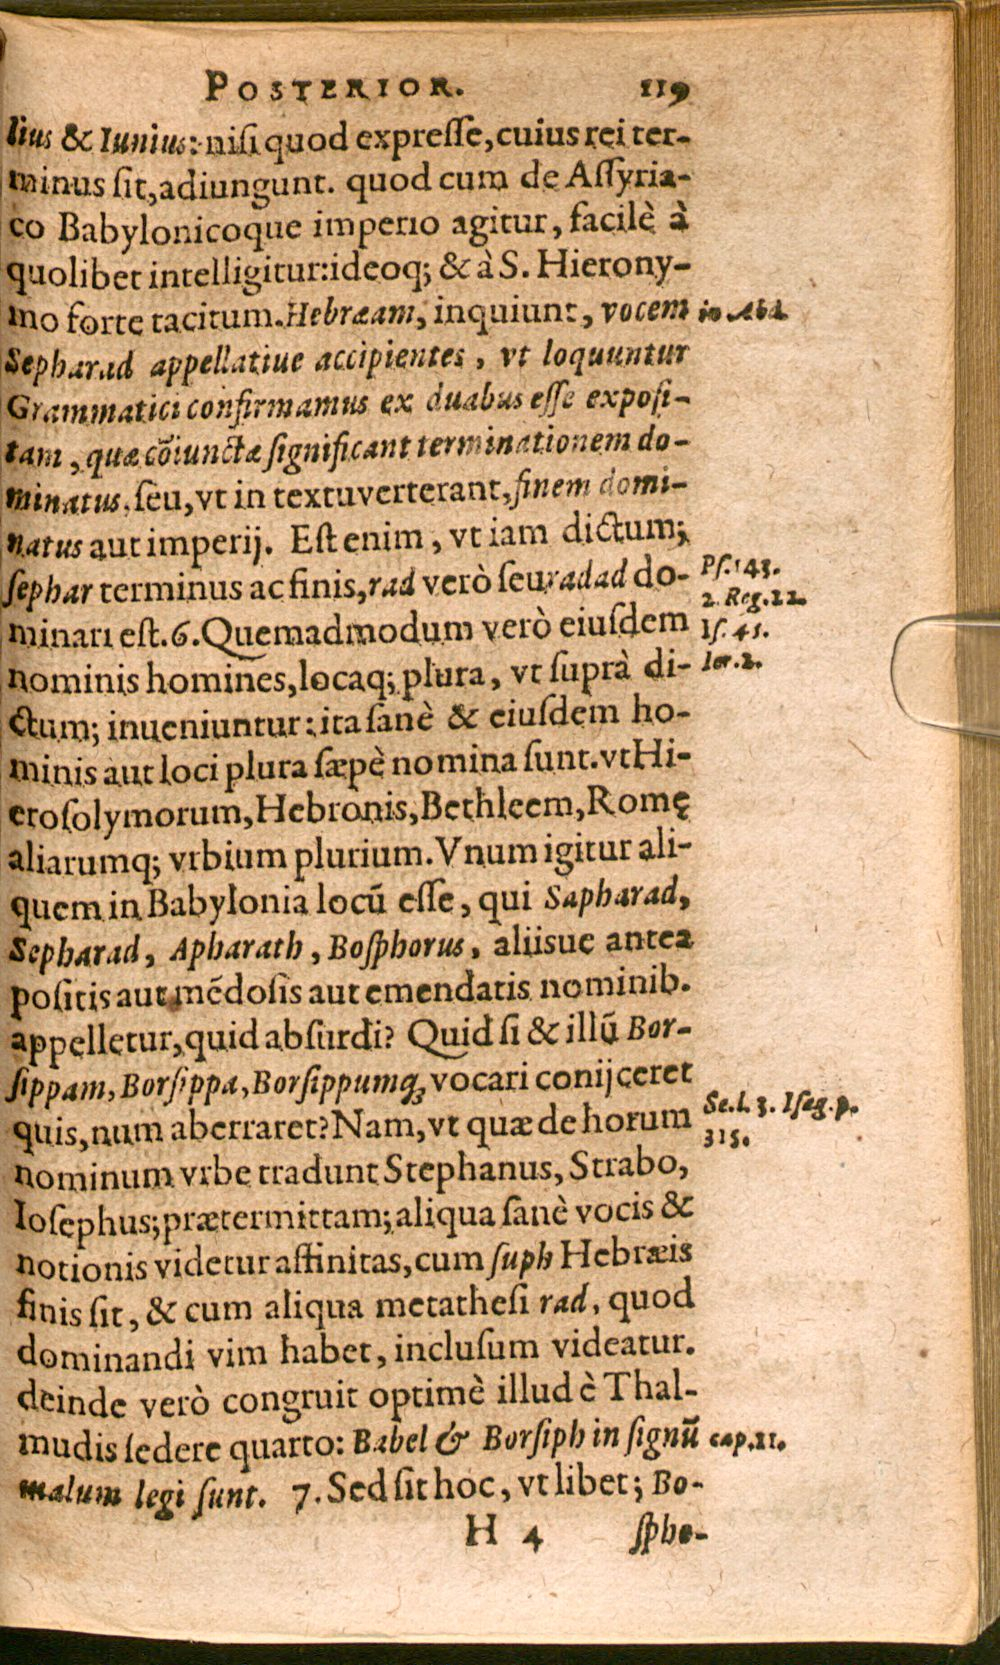 POSTERIOR. 119
lius & Iunius: nisi quod expreſſe, cuius rei ter-
minus ſit, adiungunt. quod cum de Aſſyria-
co Babylonicoque imperio agitur, facilè à
quolibet intelligitur: ideoq; & à S. Hierony-
mo forte tacitum. Hebræam, inquiunt, vocem
in Abd.
Sepharad appellatiue accipientes, vt loquuntur
Grammatici confirmamus ex duabus eſſe expoſi-
tam, quæ cōiunctæ ſignificant terminationem do-
minatus. ſeu, vt in textu verterant, finem domi-
natus aut imperij. Eſt enim, vt iam dictum;
ſephar terminus ac finis, rad verò ſeu radad do-
Pſ. 143.
2. Reg. 22.
minari eſt. 6. Quemadmodum verò eiuſdem
Iſ. 45.
nominis homines, locaq; plura, vt ſuprà di-
Ier. 2.
ctum; inueniuntur: ita ſanè & eiuſdem ho-
minis aut loci plura ſæpè nomina ſunt. vt Hi-
eroſolymorum, Hebronis, Bethleem, Romę
aliarumq; vrbium plurium. Vnum igitur ali-
quem in Babylonia locū eſſe, qui Sapharad,
Sepharad, Apharath, Boſphorus, aliisue antea
poſitis aut mēdoſis aut emendatis nominib.
appelletur, quid abſurdi? Quid ſi & illū Bor-
ſippam, Borſippa, Borſippumq; vocari conijceret
quis, num aberraret? Nam, vt quæ de horum
Se. l. 3. Iſag. p.
315.
nominum vrbe tradunt Stephanus, Strabo,
Ioſephus; prætermittam; aliqua ſanè vocis &
notionis videtur affinitas, cum ſuph Hebræis
finis ſit, & cum aliqua metatheſi rad, quod
dominandi vim habet, incluſum videatur.
deinde verò congruit optimè illud è Thal-
mudis ſedere quarto: Babel & Borſiph in ſignū
cap. 11.
malum legi ſunt. 7. Sed ſit hoc, vt libet; Bo-
H 4 ſpho-